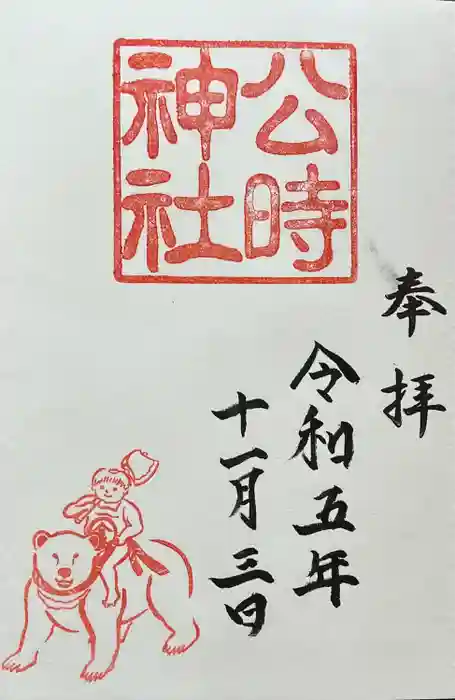 奉拝
公時
神社
令和五年
十一月三日
金